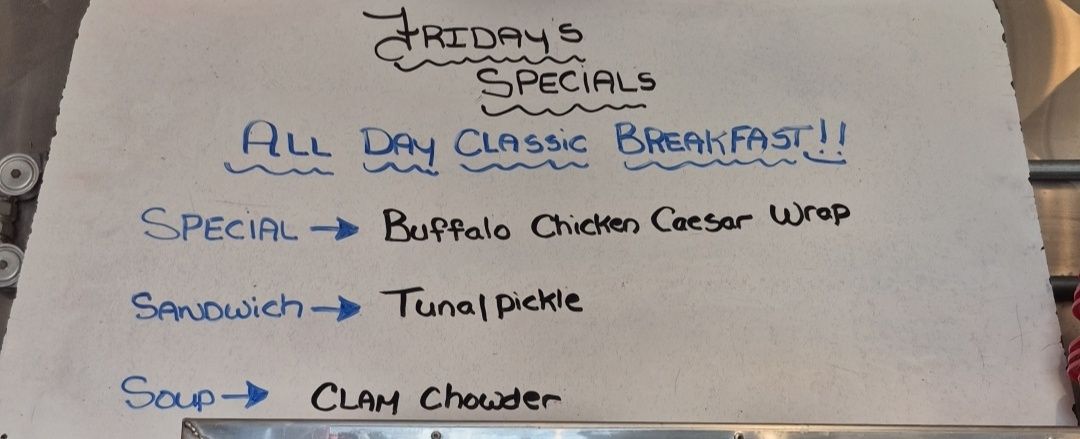 FRIDAY'S
SPECIALS
ALL DAY CLASSIC BREAKFAST!!
SPECIAL → Buffalo Chicken Caesar Wrap
SANDWich → Tuna/pickle
Soup → CLAM Chowder